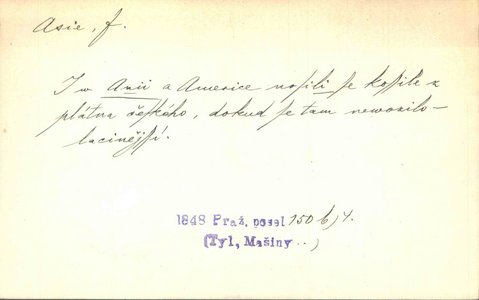 Asie, f.
I w Asii a Americe nosili se košile z
plátna českého, dokud se tam newozilo
lacinější.
1848 Praž. posel 150 b/4.
(Tyl, Mašiny ..)